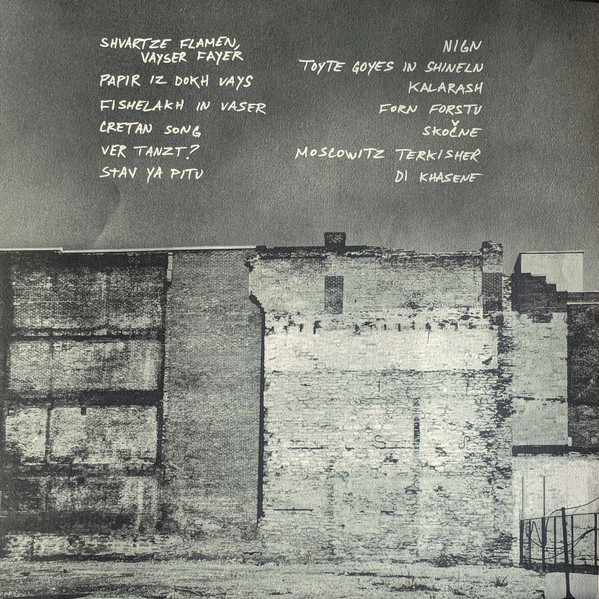 SHVARTZE FLAMEN,
VAYSER FAYER
PAPIR IZ DOKH VAYS
FISHELAKH IN VASER
CRETAN SONG
VER TANZT?
STAV YA PITU
NIGN
TOYTE GOYES IN SHINELN
KALARASH
FORN FORSTU
SKOČNE
MOSCOWITZ TERKISHER
DI KHASENE